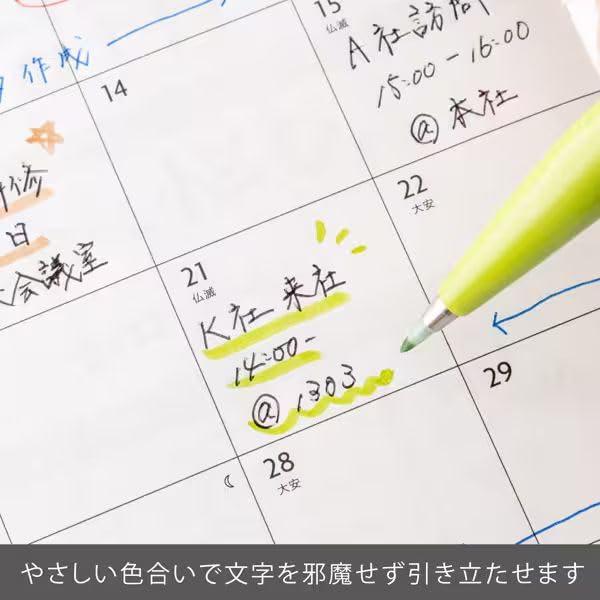 作成
14
15
仏滅
A社訪問
15:00-16:00
@本社
修
日
会議室
21
仏滅
K社 来社
14:00-
@1303
22
大安
28
大安
29
やさしい色合いで文字を邪魔せず引き立たせます